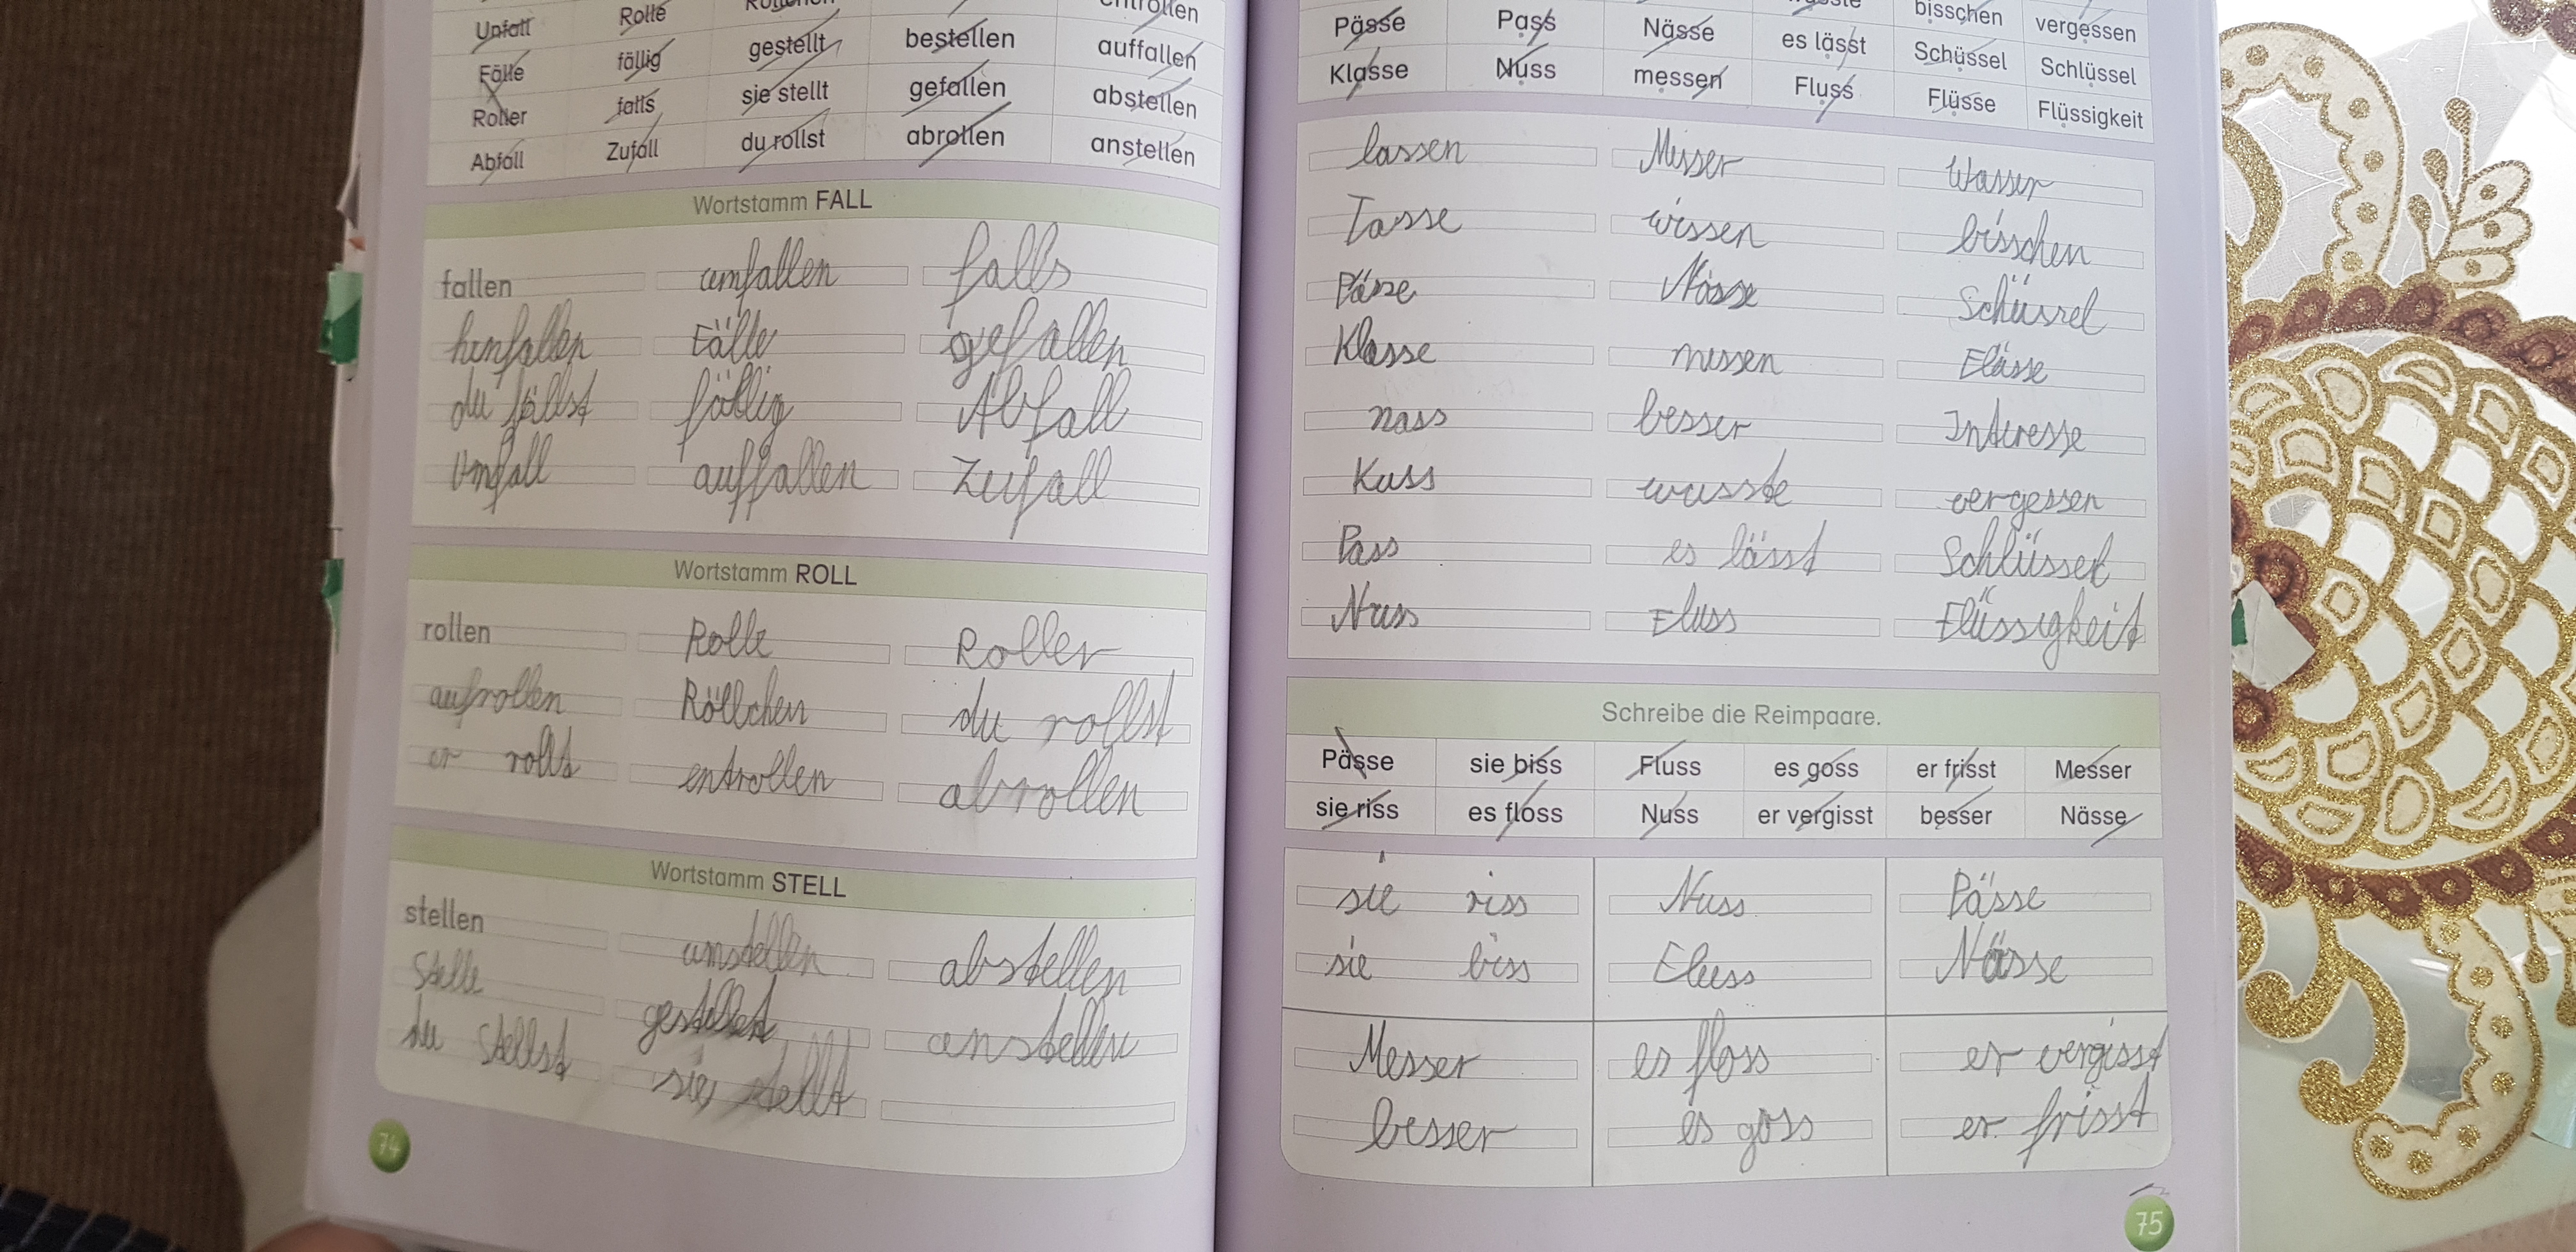 Unfall Rolle
Fälle fällig gestellt bestellen auffallen
Roller falls sie stellt gefallen abstellen
Abfall Zufall du rollst abrollen anstellen
Wortstamm FALL
fallen umfallen falls
hinfallen Fälle gefallen
du fällst fällig Abfall
Unfall auffallen Zufall
Wortstamm ROLL
rollen Rolle Roller
aufrollen Röllchen du rollst
er rollt entrollen abrollen
Wortstamm STELL
stellen umstellen abstellen
Stelle gestellt anstellen
du stellst sie stellt
74
Pässe Pass Nässe es lässt bisschen vergessen
Klasse Nuss messen Fluss Schüssel Schlüssel
Flüsse Flüssigkeit
lassen Messer Wasser
Tasse wissen bisschen
Pässe Nässe Schüssel
Klasse messen Flüsse
nass besser Interesse
Kuss wusste vergessen
Pass es lässt Schlüssel
Nuss Fluss Flüssigkeit
Schreibe die Reimpaare.
Pässe sie biss Fluss es goss er frisst Messer
sie riss es floss Nuss er vergisst besser Nässe
sie riss Nuss Pässe
sie biss Fluss Nässe
Messer es floss er vergisst
besser es goss er frisst
75